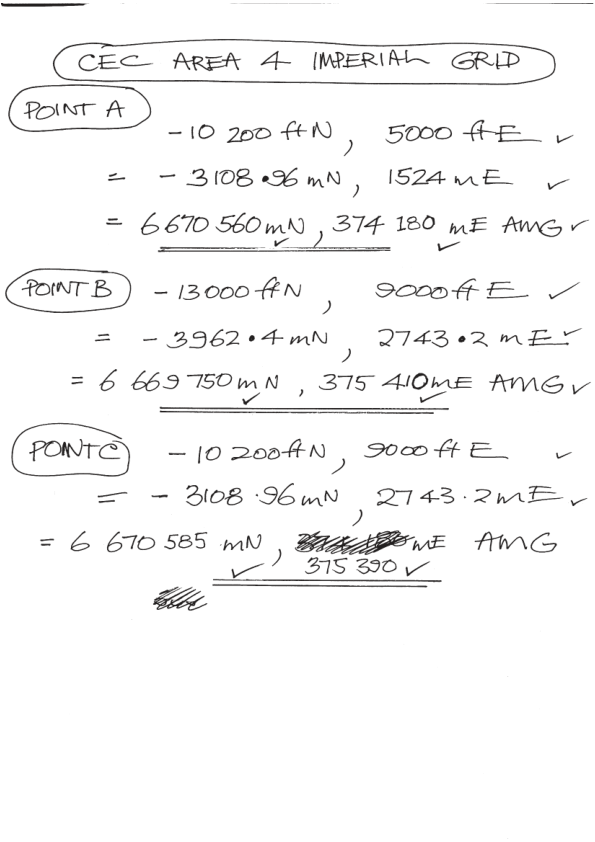 CEC AREA 4 IMPERIAL GRID
POINT A
-10 200 ft N, 5000 ft E ✓
= -3108.96 mN, 1524 mE ✓
= 6 670 560 mN, 374 180 mE AMG ✓
✓ ✓
POINT B -13000 ft N, 9000 ft E ✓
= -3962.4 mN, 2743.2 mE ✓
= 6 669 750 mN, 375 410 mE AMG ✓
✓ ✓
POINT C -10 200 ft N, 9000 ft E ✓
= -3108.96 mN, 2743.2 mE ✓
= 6 670 585 mN, mE AMG
✓ 375 390 ✓